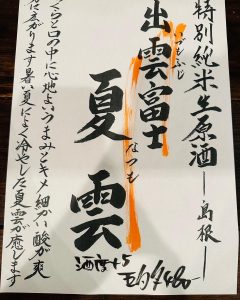 特別純米生原酒ー島根
いづもふじ
出雲富士
夏雲
なつも
酒度+5
くらと口の中に心地よいうまみとキメ細かい酸が爽
に広がります暑い夏によく冷やした夏雲が癒します